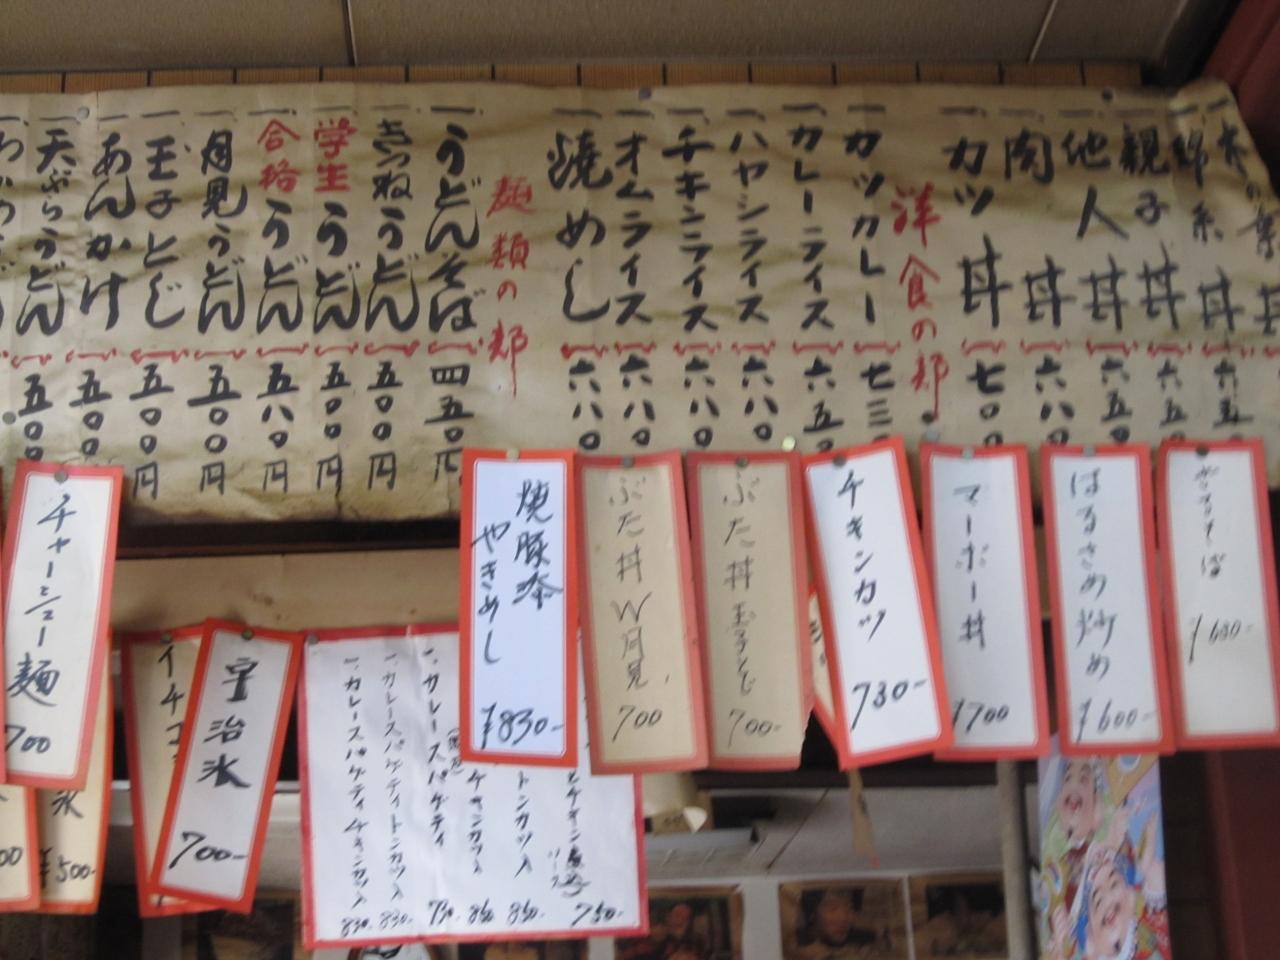 木の葉丼
錦糸丼 六五
親子丼 六五
他人丼 六五〇
肉丼 六八〇
カツ丼 七〇〇
洋食の部
一、カツカレー 七三〇
一、カレーライス 六五〇
一、ハヤシライス 六八〇
一、チキンライス 六八〇
一、オムライス 六八〇
一、焼めし 六八〇
麺類の部
一、うどんそば 四五〇円
一、きつねうどん 五〇〇円
一、学生うどん 五〇〇円
一、合格うどん 五八〇円
一、月見うどん 五〇〇円
一、玉子とじ 五〇〇円
一、あんかけ 五〇〇
一、天ぷらうどん 五〇〇
¥680-
はるさめ炒め ¥600-
マーボー丼 ¥700
チキンカツ 730-
ぶた丼玉子とじ 700-
ぶた丼W月見 700
焼豚
やきめし ¥830-
750-
トンカツ入 860-
チキンカツ入 860-
一、カレースパゲティ 730-
一、カレースパゲティトンカツ入 830-
一、カレースパゲティチキンカツ入 830-
宇治氷 700-
イチゴ
氷 ¥500-
チャーシュー麺 700